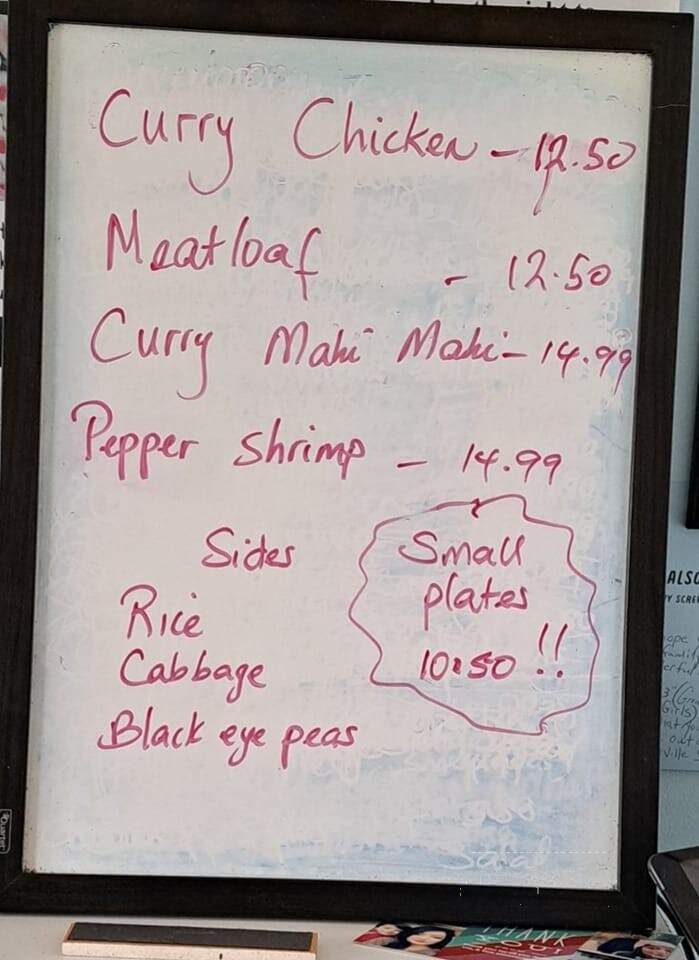 Curry Chicken - 12.50
Meatloaf - 12.50
Curry Mahi Mahi - 14.99
Pepper Shrimp - 14.99
Sides
Rice
Cabbage
Black eye peas
Small
plates
10.50 !!
ALSO
THANK
YOU!
QUARTET